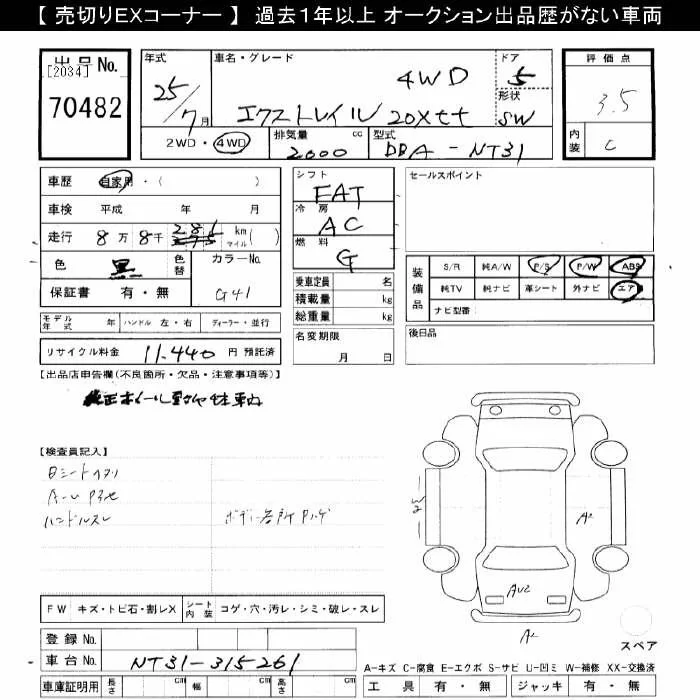 【 売切りEXコーナー 】 過去１年以上 オークション出品歴がない車両
出品No.
[2034]
70482
年式
25/7月
車名・グレード
4WD
エクストレイル 20Xtt
ドア
5
形状
SW
評価点
3.5
内装
C
2WD・4WD
排気量
2000 cc
型式
DBA-NT31
車歴 自家用・( )
車検 平成 年 月
走行 8万8千281 km マイル( )
色 黒 色替 カラーNo. G41
保証書 有・無
シフト
FAT
冷房
AC
燃料
G
乗車定員 名
積載量 kg
総重量 kg
セールスポイント
装備品
S/R 純A/W P/S P/W ABS
純TV 純ナビ 革シート 外ナビ エア
ナビ型番:
モデル年式 年 ハンドル 左・右 ディーラー・並行
リサイクル料金 11,440 円 預託済
名変期限
月 日
後日品
【出品店申告欄(不良箇所・欠品・注意事項等)】
純正ホイール
車内
【検査員記入】
ハンドルスレ
ボディ各所
W2
A2
AU2
A2
FW キズ・トビ石・割レX シート内装 コゲ・穴・汚レ・シミ・破レ・スレ
登録No.
車台No. NT31-315261
車庫証明用 長さ cm 幅 cm 高さ cm
スペア
A-キズ C-腐食 E-エクボ S-サビ U-凹ミ W-補修 XX-交換済
工具 有・無 ジャッキ 有・無